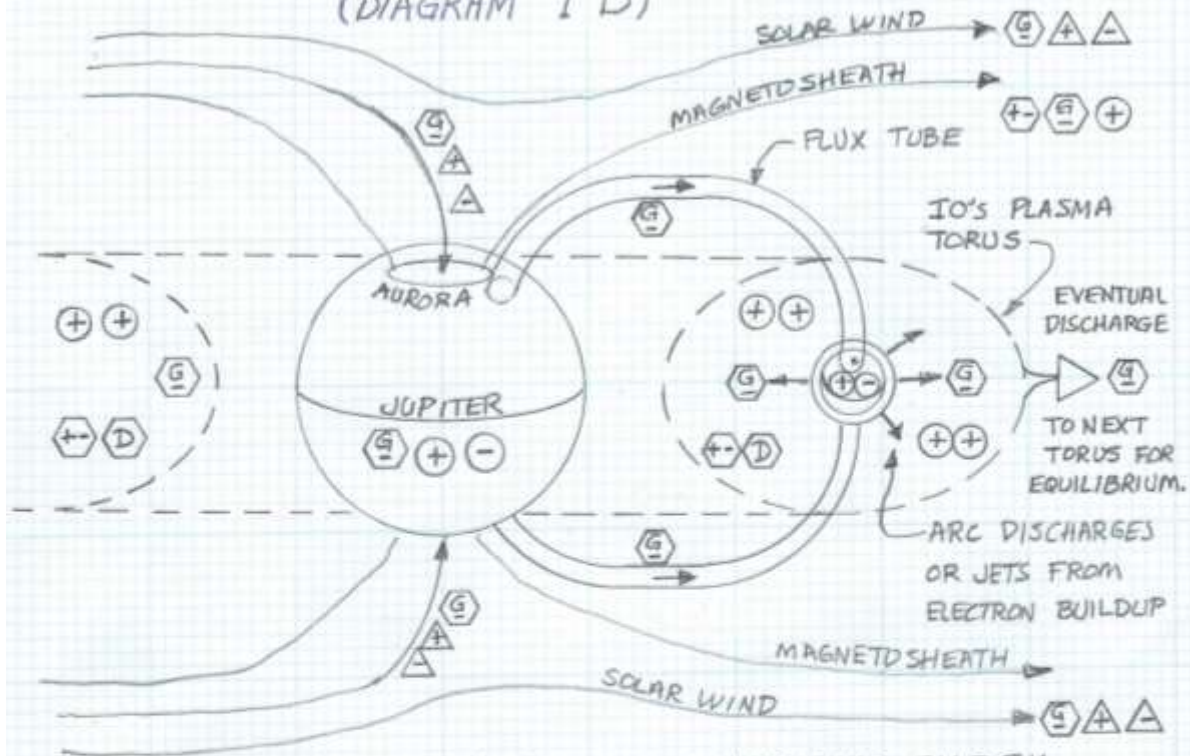 (DIAGRAM 1 D)
SOLAR WIND
G + -
MAGNETOSHEATH
+- G +
FLUX TUBE
G
+
-
G
IO'S PLASMA
TORUS
AURORA
EVENTUAL
DISCHARGE
+ +
+ +
G
G
+ -
G
G
JUPITER
G + -
+- D
+- D
+ +
TO NEXT
TORUS FOR
EQUILIBRIUM.
G
ARC DISCHARGES
OR JETS FROM
ELECTRON BUILDUP
G
+
-
MAGNETOSHEATH
SOLAR WIND
G + -